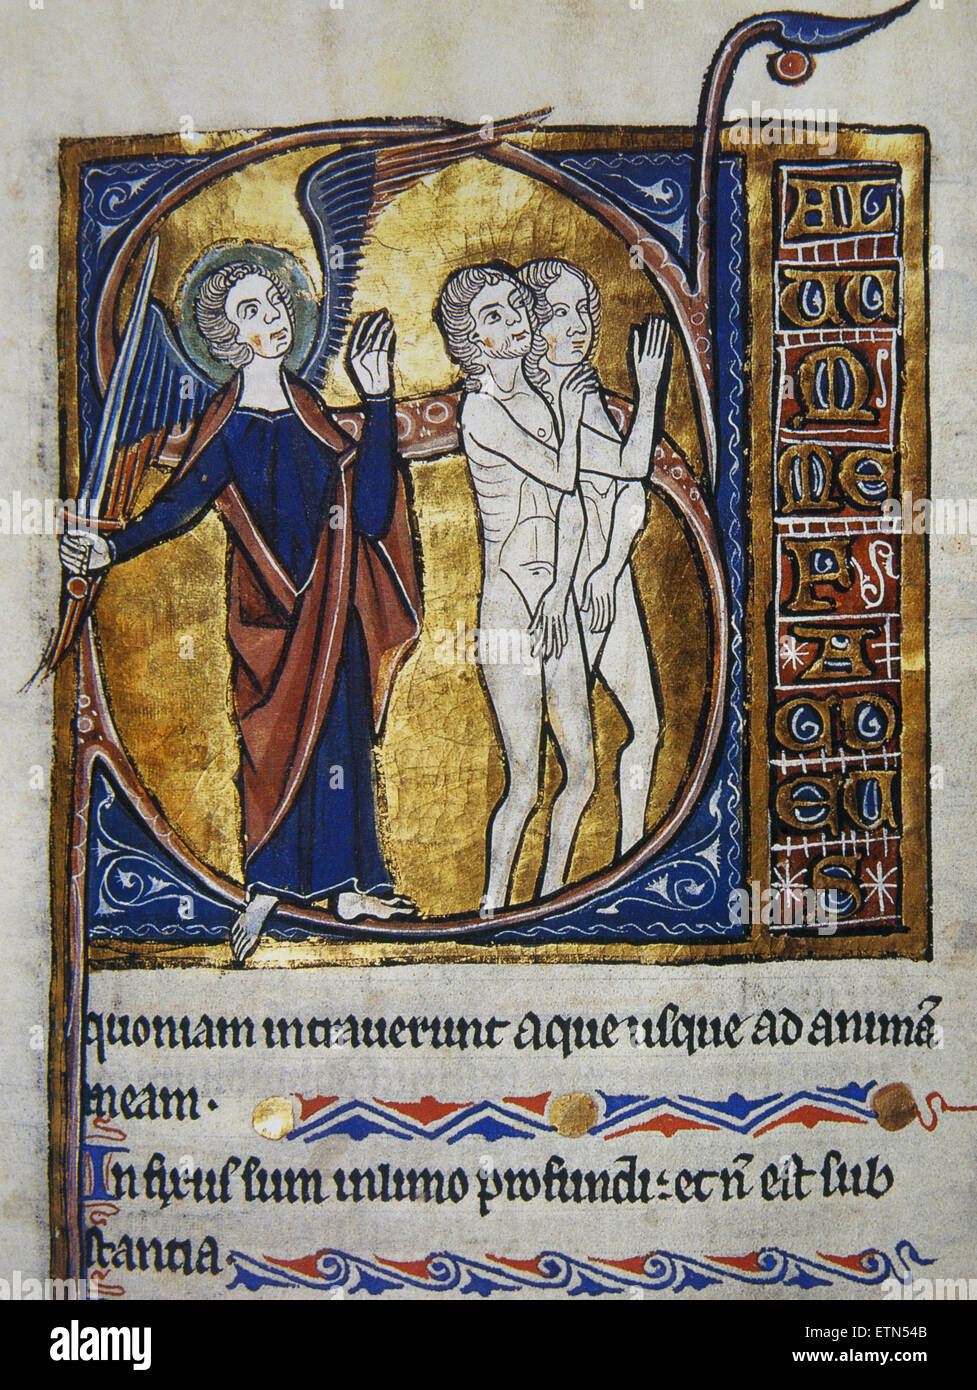 S
AL
UU
M
ME
F
A
CD
EU
S
quoniam intrauerunt aque usque ad animā
meam.
Infixus sum inlimo profundi: et n̄ est sub
stantia.
alamy
Image ID: ETN54B
www.alamy.com